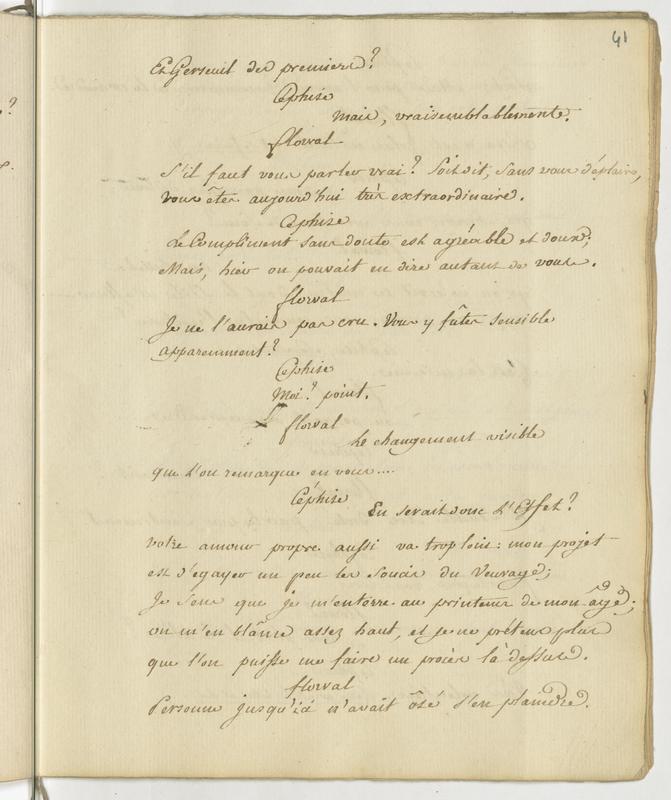 41
Et Gerseuil des premiers?
Céphise
Mais, vraisemblablement.
florval
S'il faut vous parler vrai? Soit dit, Sans vous déplaire,
vous êtes aujourd'hui très extraordinaire.
Céphise
Le Compliment sans doute est agréable et doux;
Mais, hier on pouvait en dire autant de vous.
florval
Je ne l'aurais pas cru. Vous y fûtes sensible
apparemment?
Céphise
Moi? point.
florval
Le changement visible
que l'on remarque en vous....
Céphise
En serait donc L'Effet?
votre amour propre aussi va trop loin: mon projet
est d'egayer un peu les Soucis du Veuvage;
Je Sens que je m'enterre au printems de mon âge;
on m'en blâme assez haut, et je ne prétens plus
que l'on puisse me faire un procès là dessus.
florval
Personne jusqu'ici n'avait ôsé s'en plaindre.